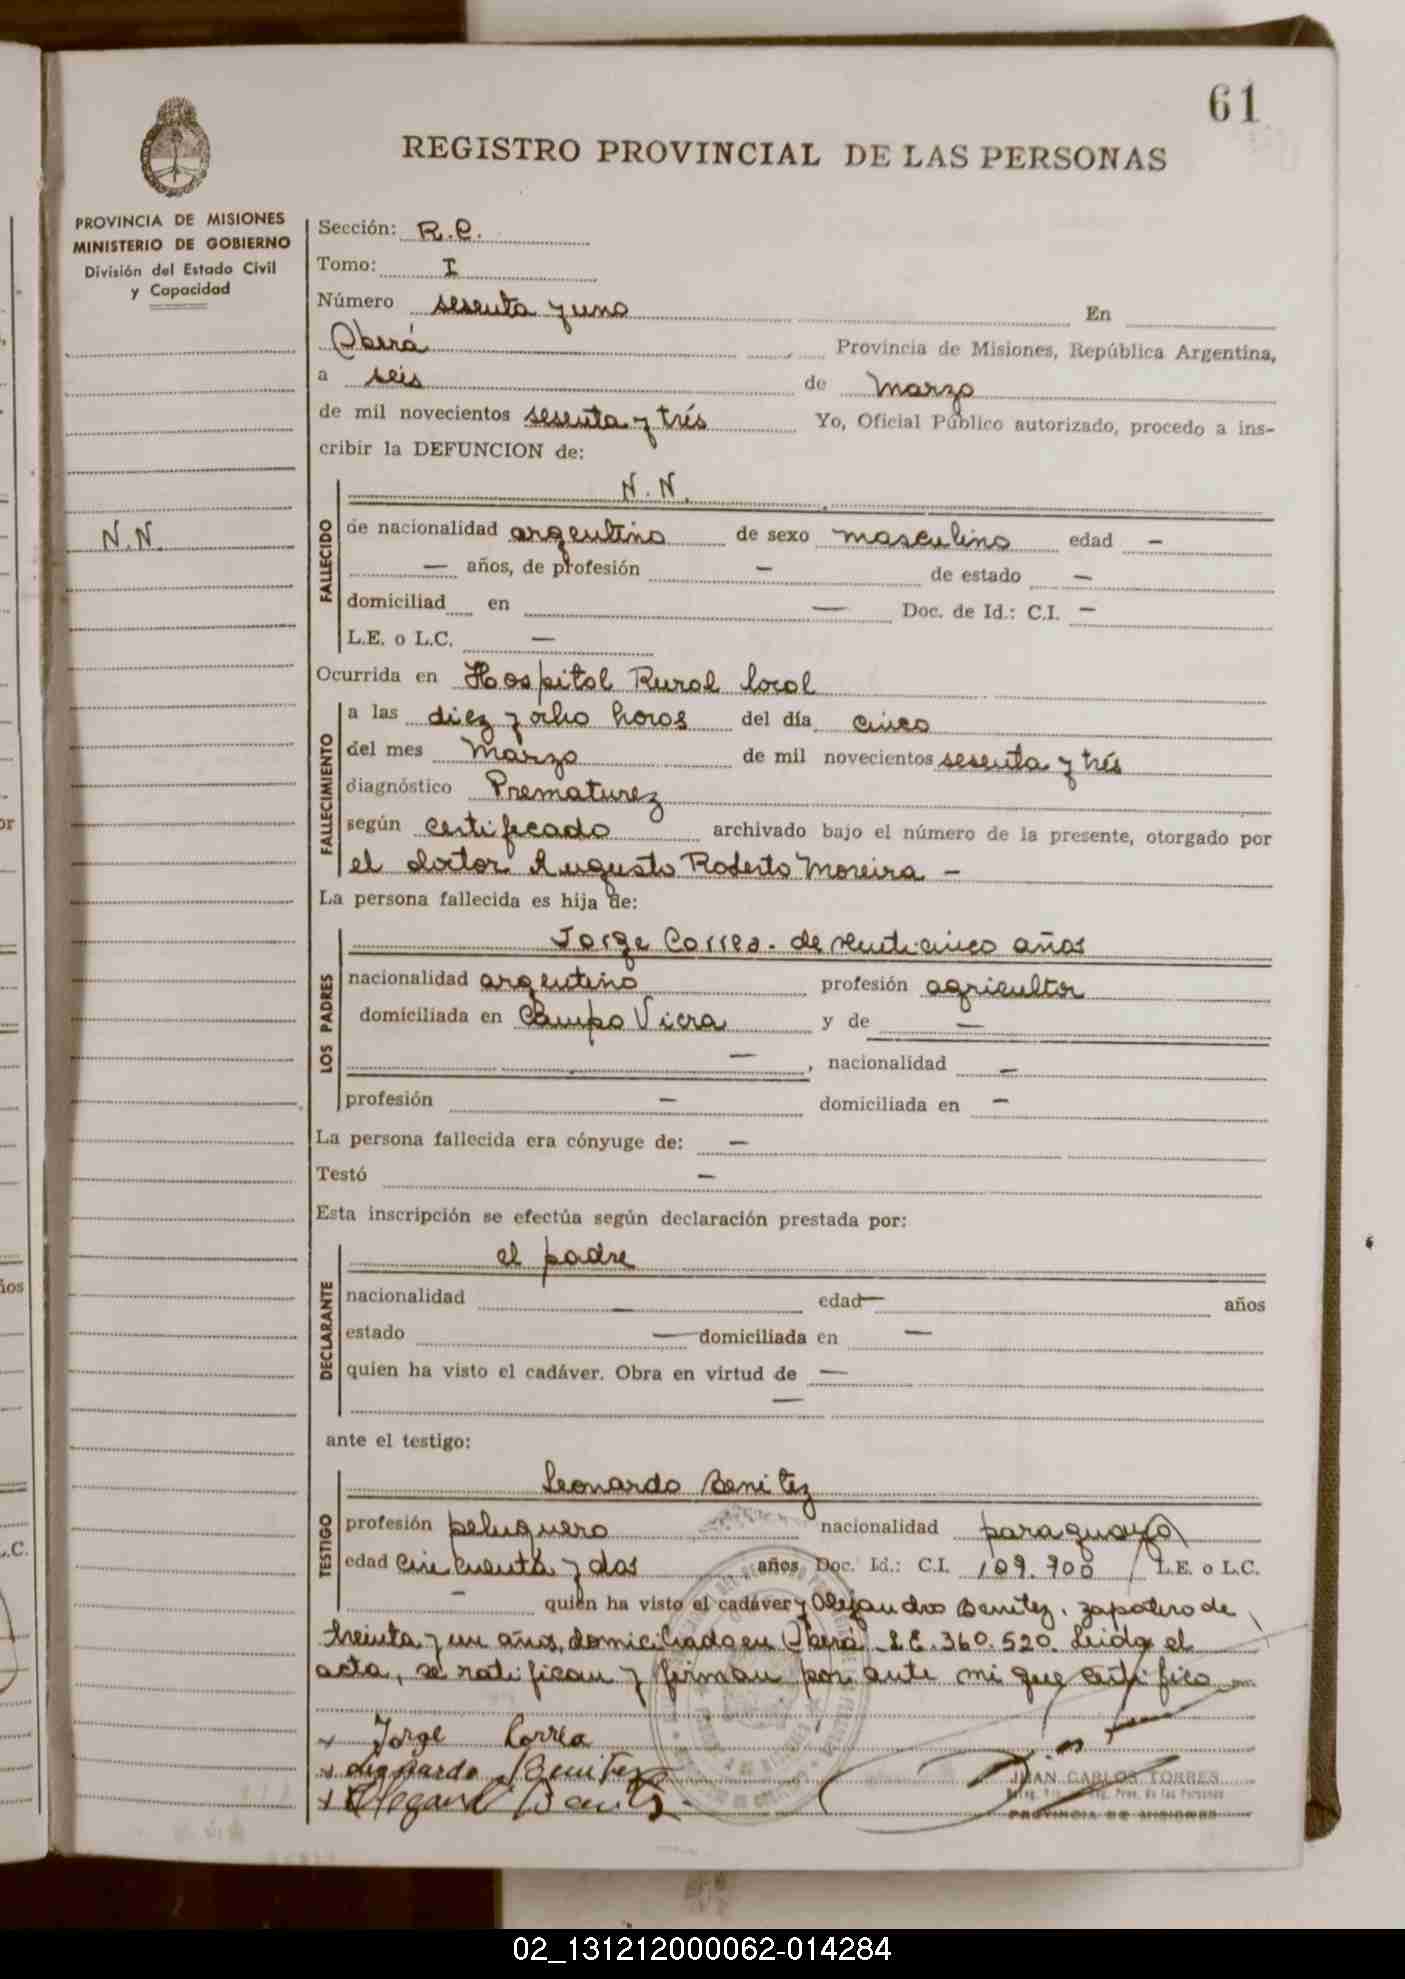 61
REGISTRO PROVINCIAL DE LAS PERSONAS
PROVINCIA DE MISIONES
MINISTERIO DE GOBIERNO
División del Estado Civil
y Capacidad
N.N.
Sección: R.C.
Tomo: I
Número sesenta y uno En
Oberá Provincia de Misiones, República Argentina,
a seis de Marzo
de mil novecientos sesenta y trés Yo, Oficial Público autorizado, procedo a ins-
cribir la DEFUNCION de:
FALLECIDO
N. N.
de nacionalidad argentino de sexo masculino edad —
— años, de profesión — de estado —
domiciliad en — Doc. de Id.: C.I. —
L.E. o L.C. —
Ocurrida en Hospital Rural local
FALLECIMIENTO
a las diez y ocho horas del día cinco
del mes Marzo de mil novecientos sesenta y trés
diagnóstico Prematurez
según certificado archivado bajo el número de la presente, otorgado por
el doctor Augusto Roberto Moreira —
La persona fallecida es hija de:
LOS PADRES
Jorge Correa. de veinticinco años
nacionalidad argentino profesión agricultor
domiciliada en Campo Viera y de —
— , nacionalidad —
profesión — domiciliada en —
La persona fallecida era cónyuge de: —
Testó —
Esta inscripción se efectúa según declaración prestada por:
DECLARANTE
el padre
nacionalidad — edad — años
estado — domiciliada en —
quien ha visto el cadáver. Obra en virtud de —
—
ante el testigo:
TESTIGO
Leonardo Benitez
profesión peluquero nacionalidad paraguayo
edad cincuenta y dos años, Doc. Id.: C.I. 109.900 L.E. o L.C.
— quien ha visto el cadáver y Alejandro Benitez, zapatero de
treinta y un años, domiciliado en Oberá L.E. 360.520. Leida el
acta, se ratifican y firman por ante mi que certifico
Jorge Correa
Leonardo Benitez
Benitez
JUAN CARLOS TORRES
Prov. de las Personas
PROVINCIA DE MISIONES
ños
L.C.
or
02_131212000062-014284